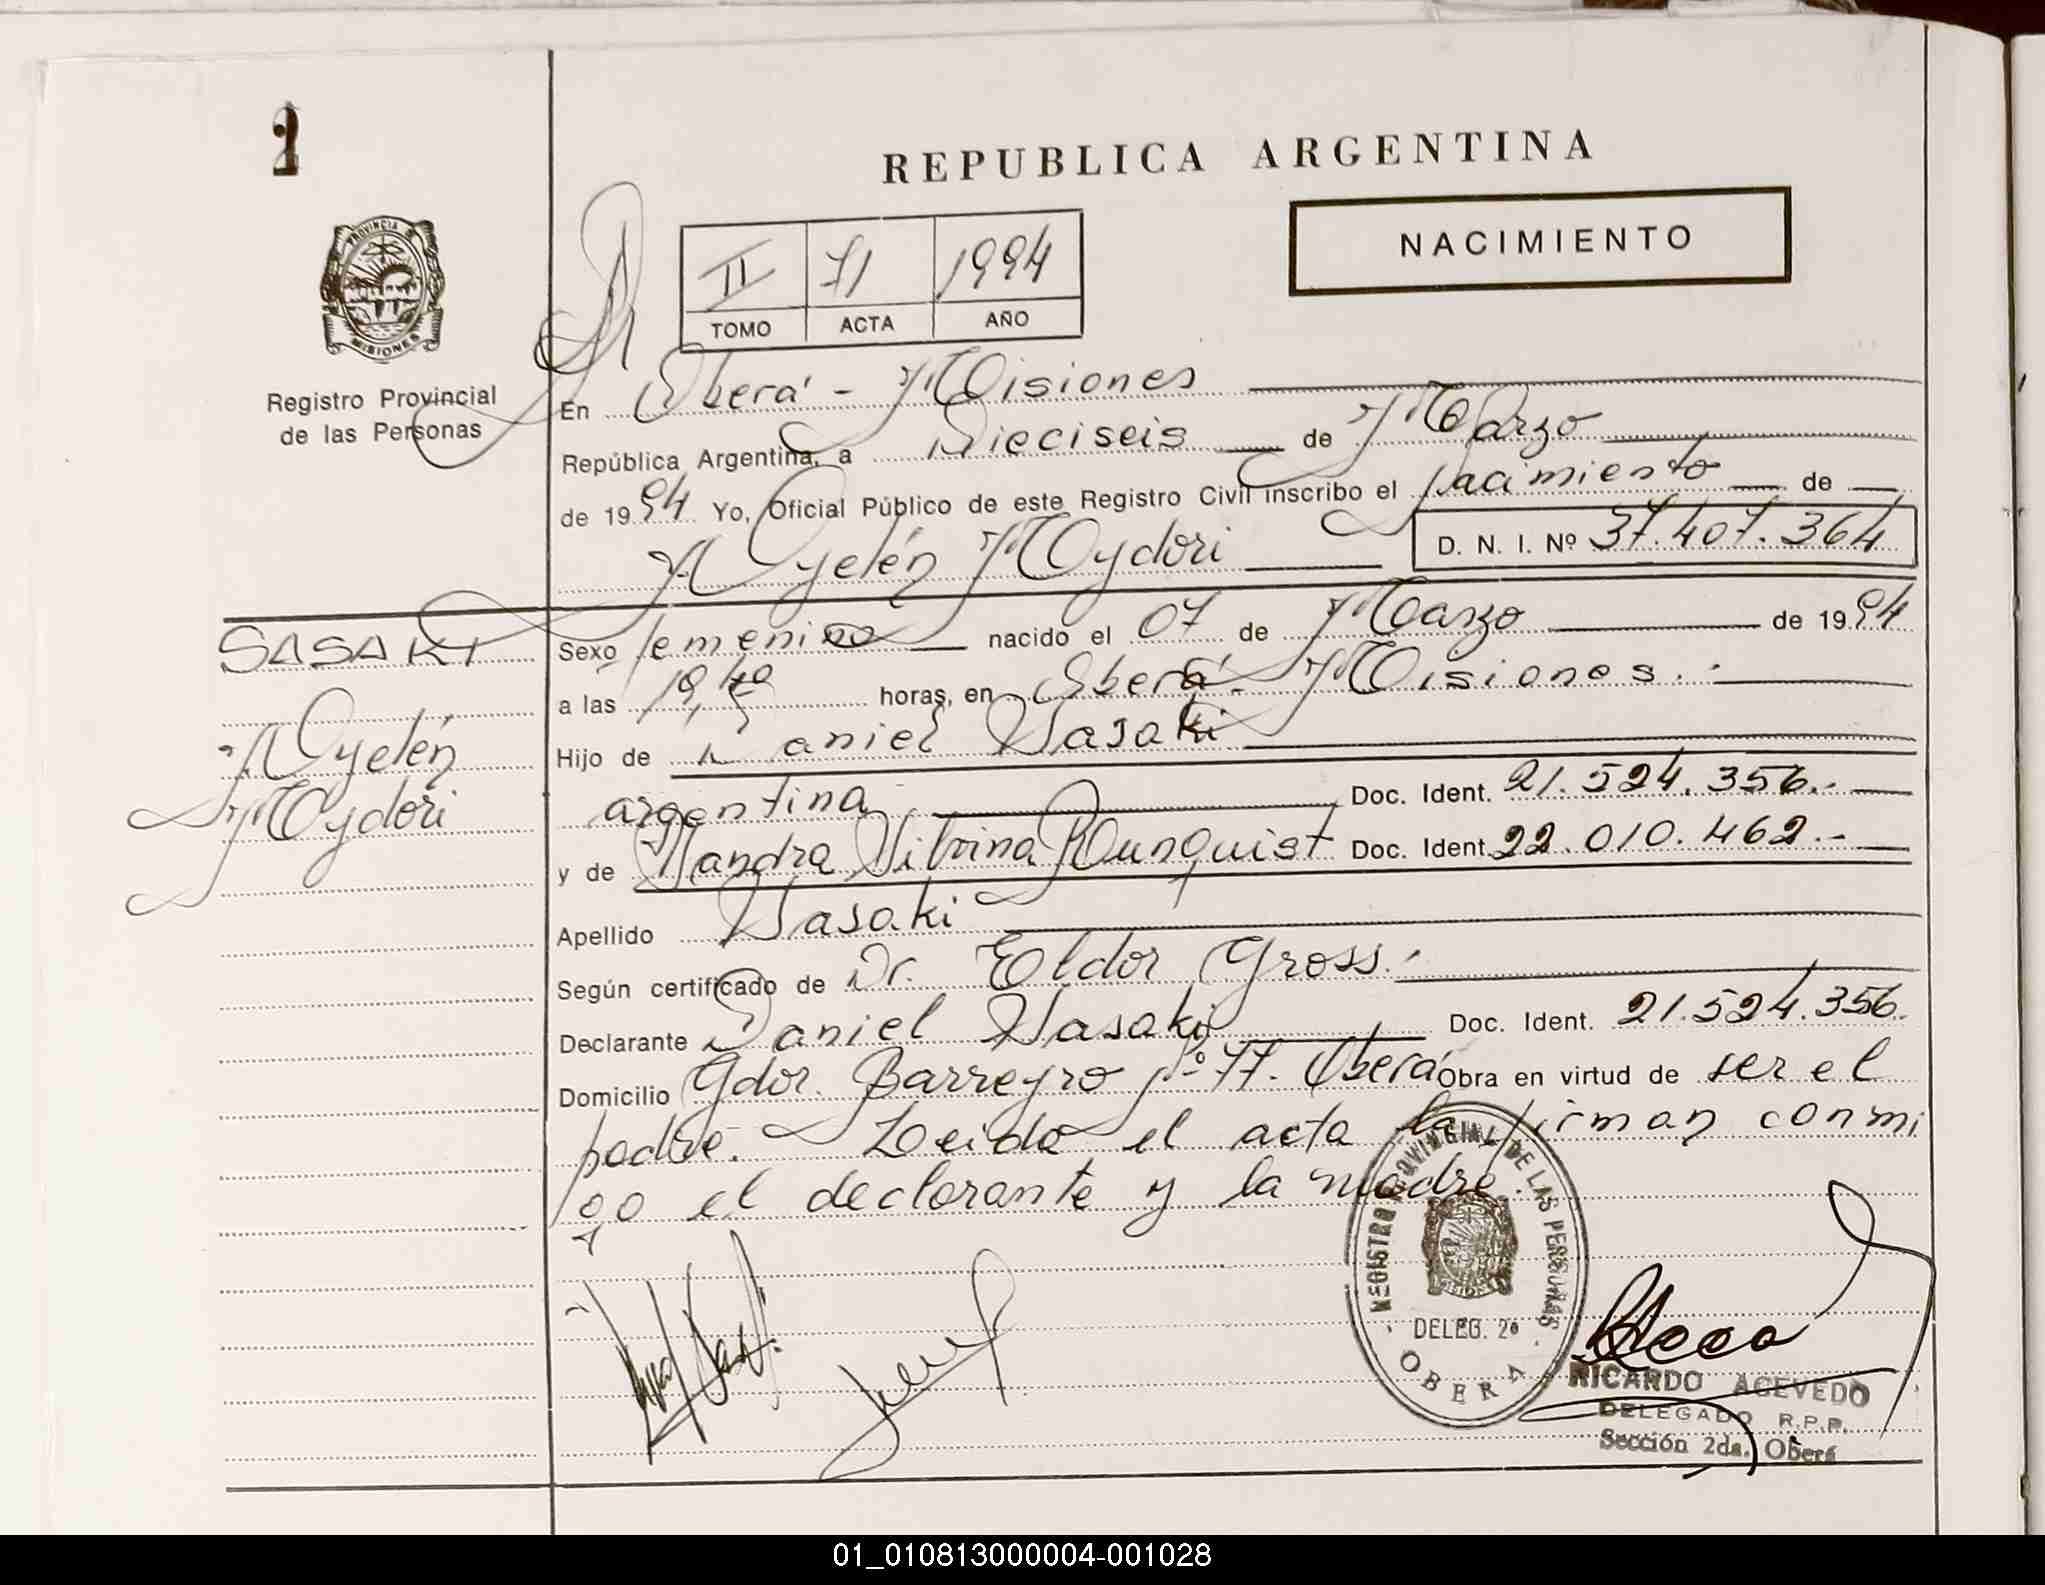 1
REPUBLICA ARGENTINA
NACIMIENTO
II 71 1994
TOMO ACTA AÑO
PROVINCIA DE
MISIONES
Registro Provincial
de las Personas
En Oberá - Misiones
República Argentina, a Dieciseis de Marzo
de 1994 Yo, Oficial Público de este Registro Civil inscribo el nacimiento de
Ayelén Maydori D. N. I. Nº 37.407.364
SASAKI
Sexo femenino nacido el 07 de Marzo de 1994
a las horas, en Oberá. Misiones.
Ayelén
Maydori
Hijo de Daniel Sasaki
argentina Doc. Ident. 21.524.356.-
y de Sandra Silvina Runquist Doc. Ident. 22.010.462.-
Apellido Sasaki
Según certificado de Dr. Eldor Gross.
Declarante Daniel Sasaki Doc. Ident. 21.524.356.
Domicilio Gdor. Barreyro Nº 77. Oberá Obra en virtud de ser el
padre. Leida el acta la firman conmi
go el declarante y la madre.
REGISTRO PROVINCIAL DE LAS PERSONAS
DELEG. 2ª
OBERA
RICARDO ACEVEDO
DELEGADO R.P.P.
Sección 2da. Oberá
01_010813000004-001028